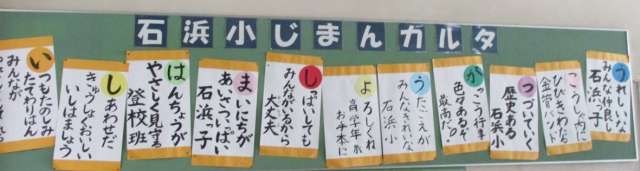 石浜小じまんカルタ
いつもたのしみ
たてわりはん
みんなが
しあわせだ
きゅうしょくおいしい
いしはましょう
はんちょうが
やさしく見守る
登校班
まいにちが
あいさついっぱい
石浜っ子
しっぱいしても
みんながいるから
大丈夫
よろしくね
高学年が
お手本に
うたごえが
みんなきれいな
石浜小
がっこう行事
色々あるぞ
最高だ!
つづいていく
歴史ある
石浜小
こうしゃ内に
ひびきわたる
金管バンド
うれしいな
みんな仲良し
石浜っ子